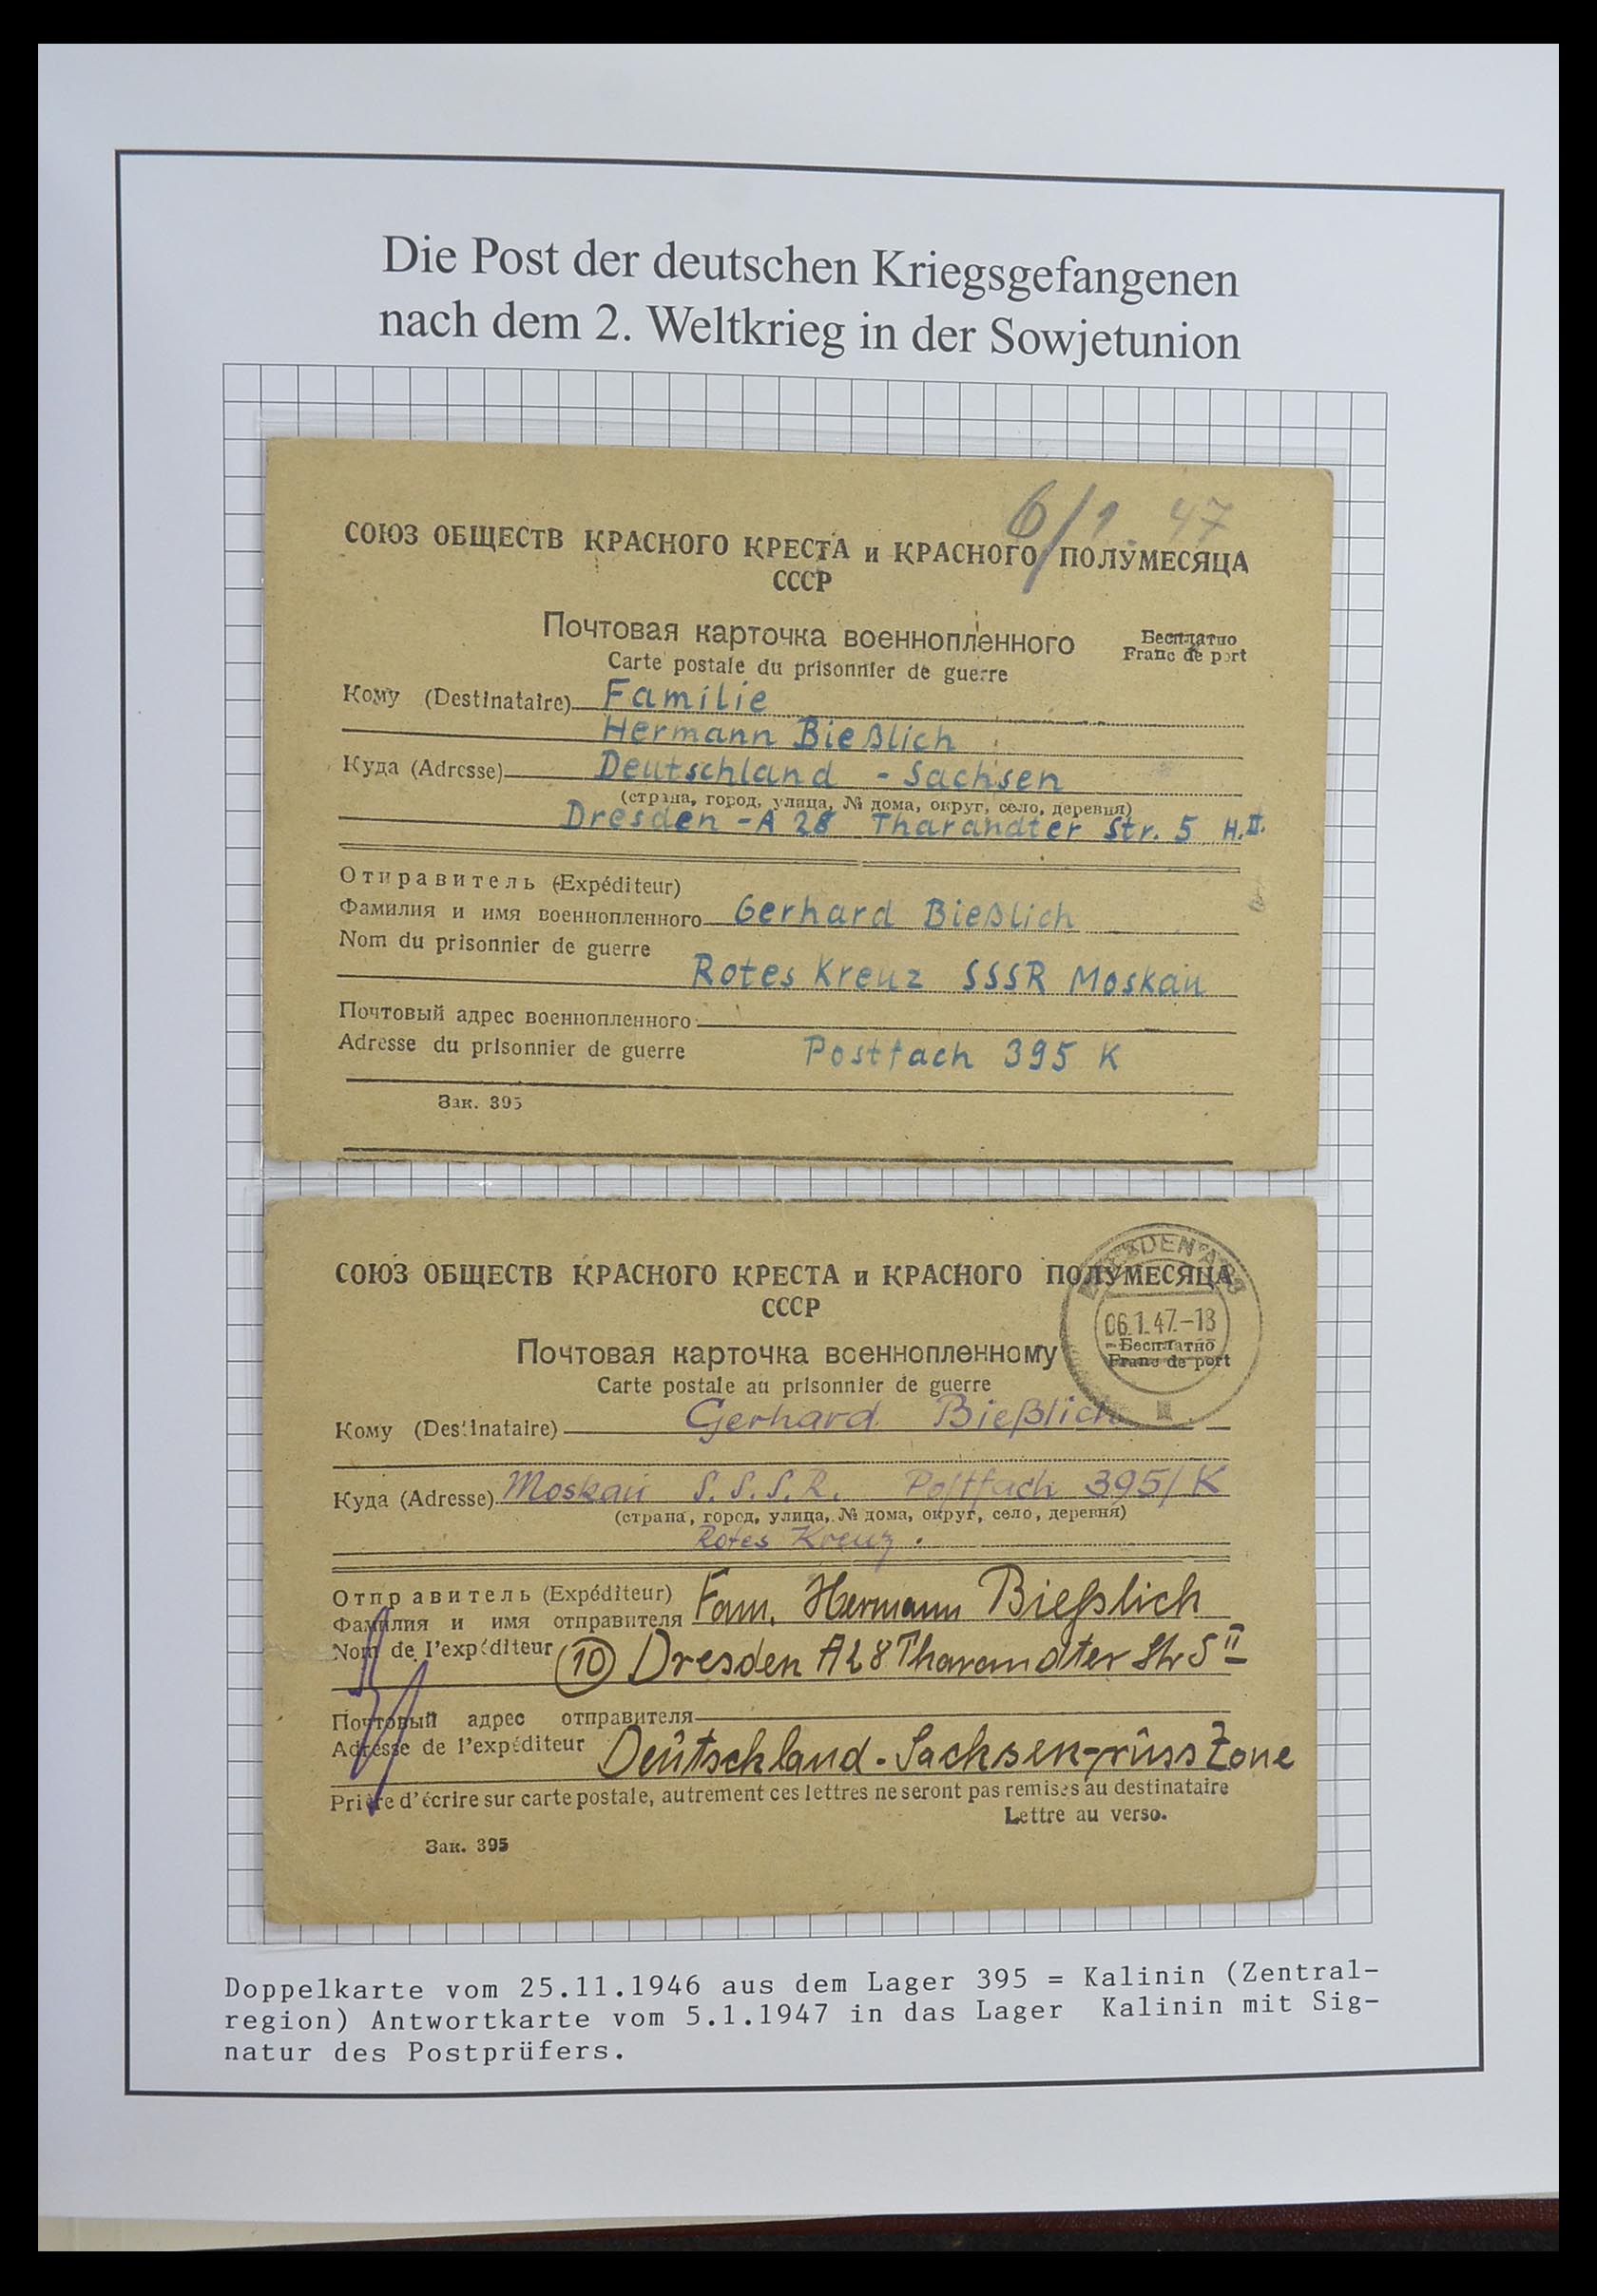 Die Post der deutschen Kriegsgefangenen
nach dem 2. Weltkrieg in der Sowjetunion
6/1. 47
СОЮЗ ОБЩЕСТВ КРАСНОГО КРЕСТА и КРАСНОГО ПОЛУМЕСЯЦА
СССР
Почтовая карточка военнопленного
Бесплатно
Franc de port
Carte postale du prisonnier de guerre
Кому (Destinataire) Familie
Hermann Bießlich
Куда (Adresse) Deutschland - Sachsen
(страна, город, улица, № дома, округ, село, деревня)
Dresden - A 28 Tharandter Str. 5 H. II.
Отправитель (Expéditeur)
Фамилия и имя военнопленного Gerhard Bießlich
Nom du prisonnier de guerre
Rotes Kreuz SSSR Moskau
Почтовый адрес военнопленного
Adresse du prisonnier de guerre Postfach 395 K
Зак. 395
СОЮЗ ОБЩЕСТВ КРАСНОГО КРЕСТА и КРАСНОГО ПОЛУМЕСЯЦА
СССР
DRESDEN A 28
06.1.47.-18
Почтовая карточка военнопленному
Бесплатно
Franc de port
Carte postale au prisonnier de guerre
Кому (Destinataire) Gerhard Bießlich
Куда (Adresse) Moskau S.S.S.R. Postfach 395/K
(страна, город, улица, № дома, округ, село, деревня)
Rotes Kreuz.
Отправитель (Expéditeur)
Фамилия и имя отправителя Fam. Hermann Bießlich
Nom de l'expéditeur (10) Dresden A28 Tharandter Str 5 II
Почтовый адрес отправителя
Adresse de l'expéditeur Deutschland - Sachsen - russ Zone
Prière d'écrire sur carte postale, autrement ces lettres ne seront pas remises au destinataire
Lettre au verso.
Зак. 395
Doppelkarte vom 25.11.1946 aus dem Lager 395 = Kalinin (Zentral-
region) Antwortkarte vom 5.1.1947 in das Lager Kalinin mit Sig-
natur des Postprüfers.